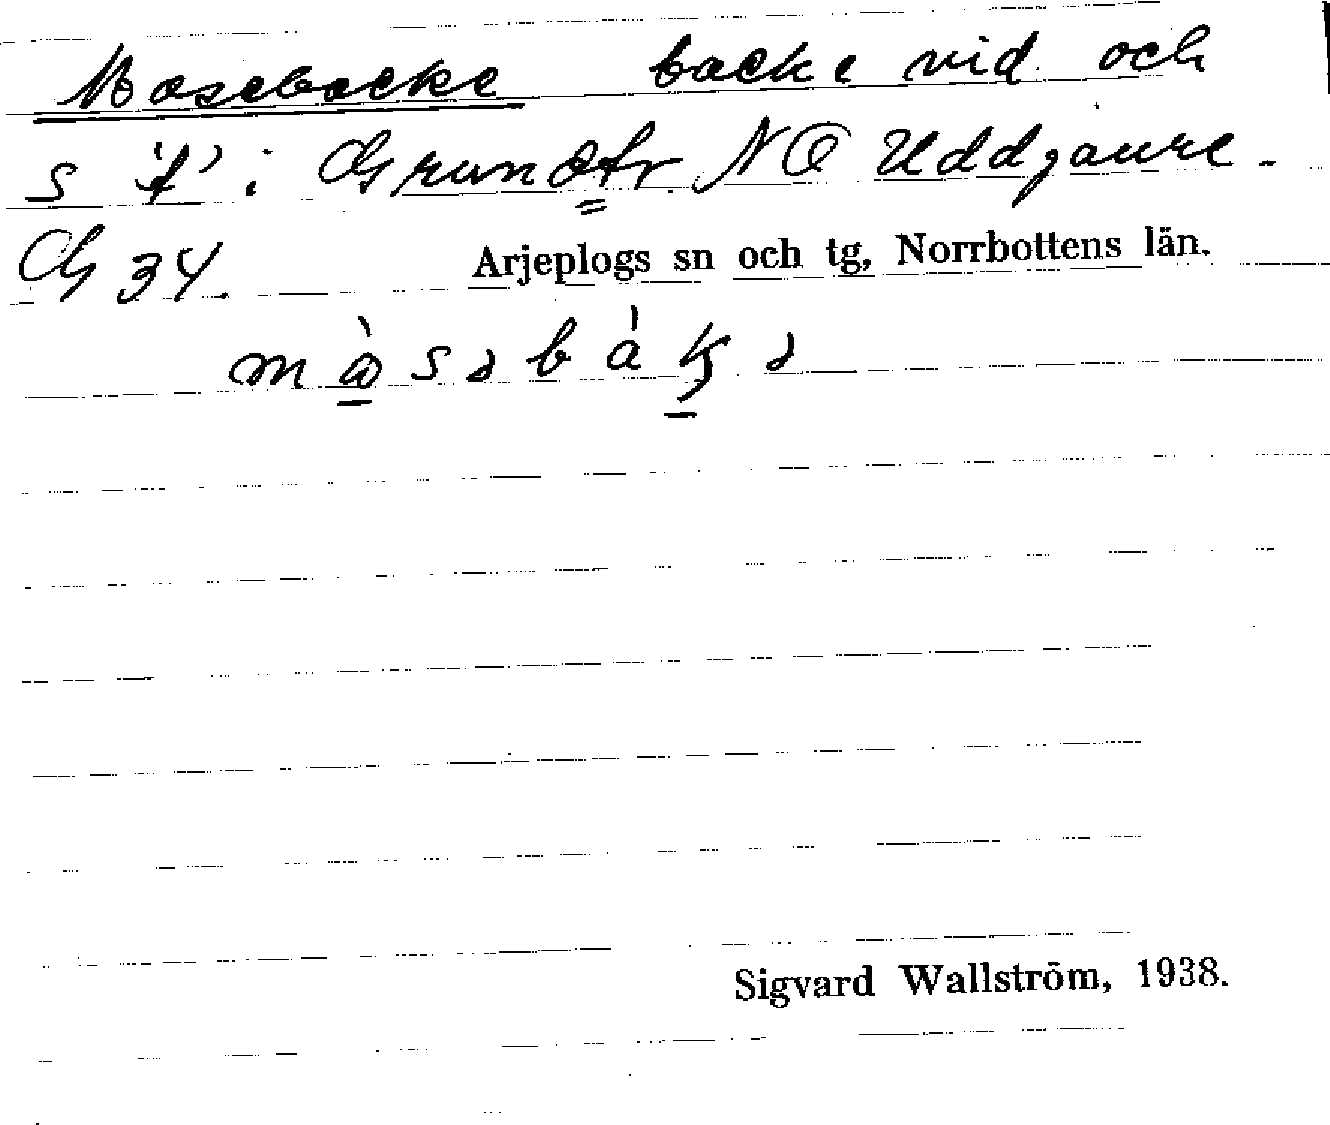 Mosebacke backe vid och
s 't' i Grundtr. NO Uddjaure.
G 34. Arjeplogs sn och tg, Norrbottens län.
Sigvard Wallström, 1938.